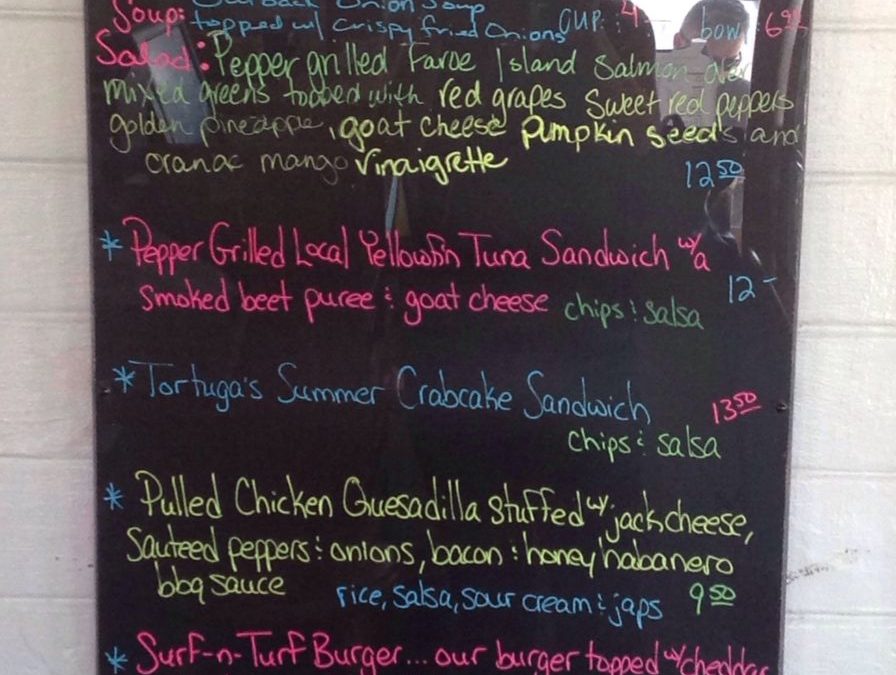 Soup: Onion Soup
topped w/ crispy fried onions CUP: 4 bowl 6
Salad: Pepper grilled Faroe Island Salmon over
mixed greens topped with red grapes sweet red peppers
golden pineapple, goat cheese pumpkin seeds and
cranac mango vinaigrette
12 50
* Pepper Grilled Local Yellowfin Tuna Sandwich w/a
smoked beet puree & goat cheese chips & salsa 12-
* Tortuga's Summer Crabcake Sandwich 13 50
chips & salsa
* Pulled Chicken Quesadilla stuffed w/ jack cheese,
Sauteed peppers & onions, bacon & honey habanero
bbq sauce rice, salsa, sour cream & japs 9 50
* Surf-n-Turf Burger... our burger topped w/ cheddar